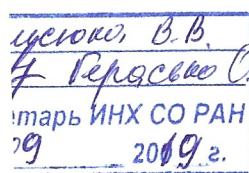 В.В.
Герасько О.
тарь ИНХ СО РАН
09 2019 г.